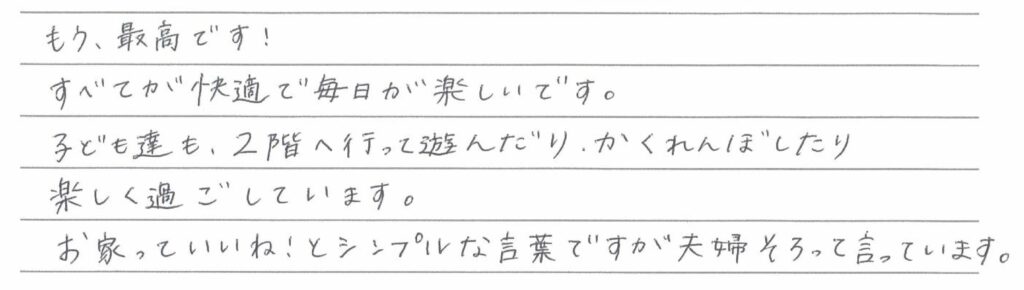 もう、最高です!
すべてが快適で毎日が楽しいです。
子ども達も、2階へ行って遊んだり、かくれんぼしたり
楽しく過ごしています。
お家っていいね!とシンプルな言葉ですが夫婦そろって言っています。